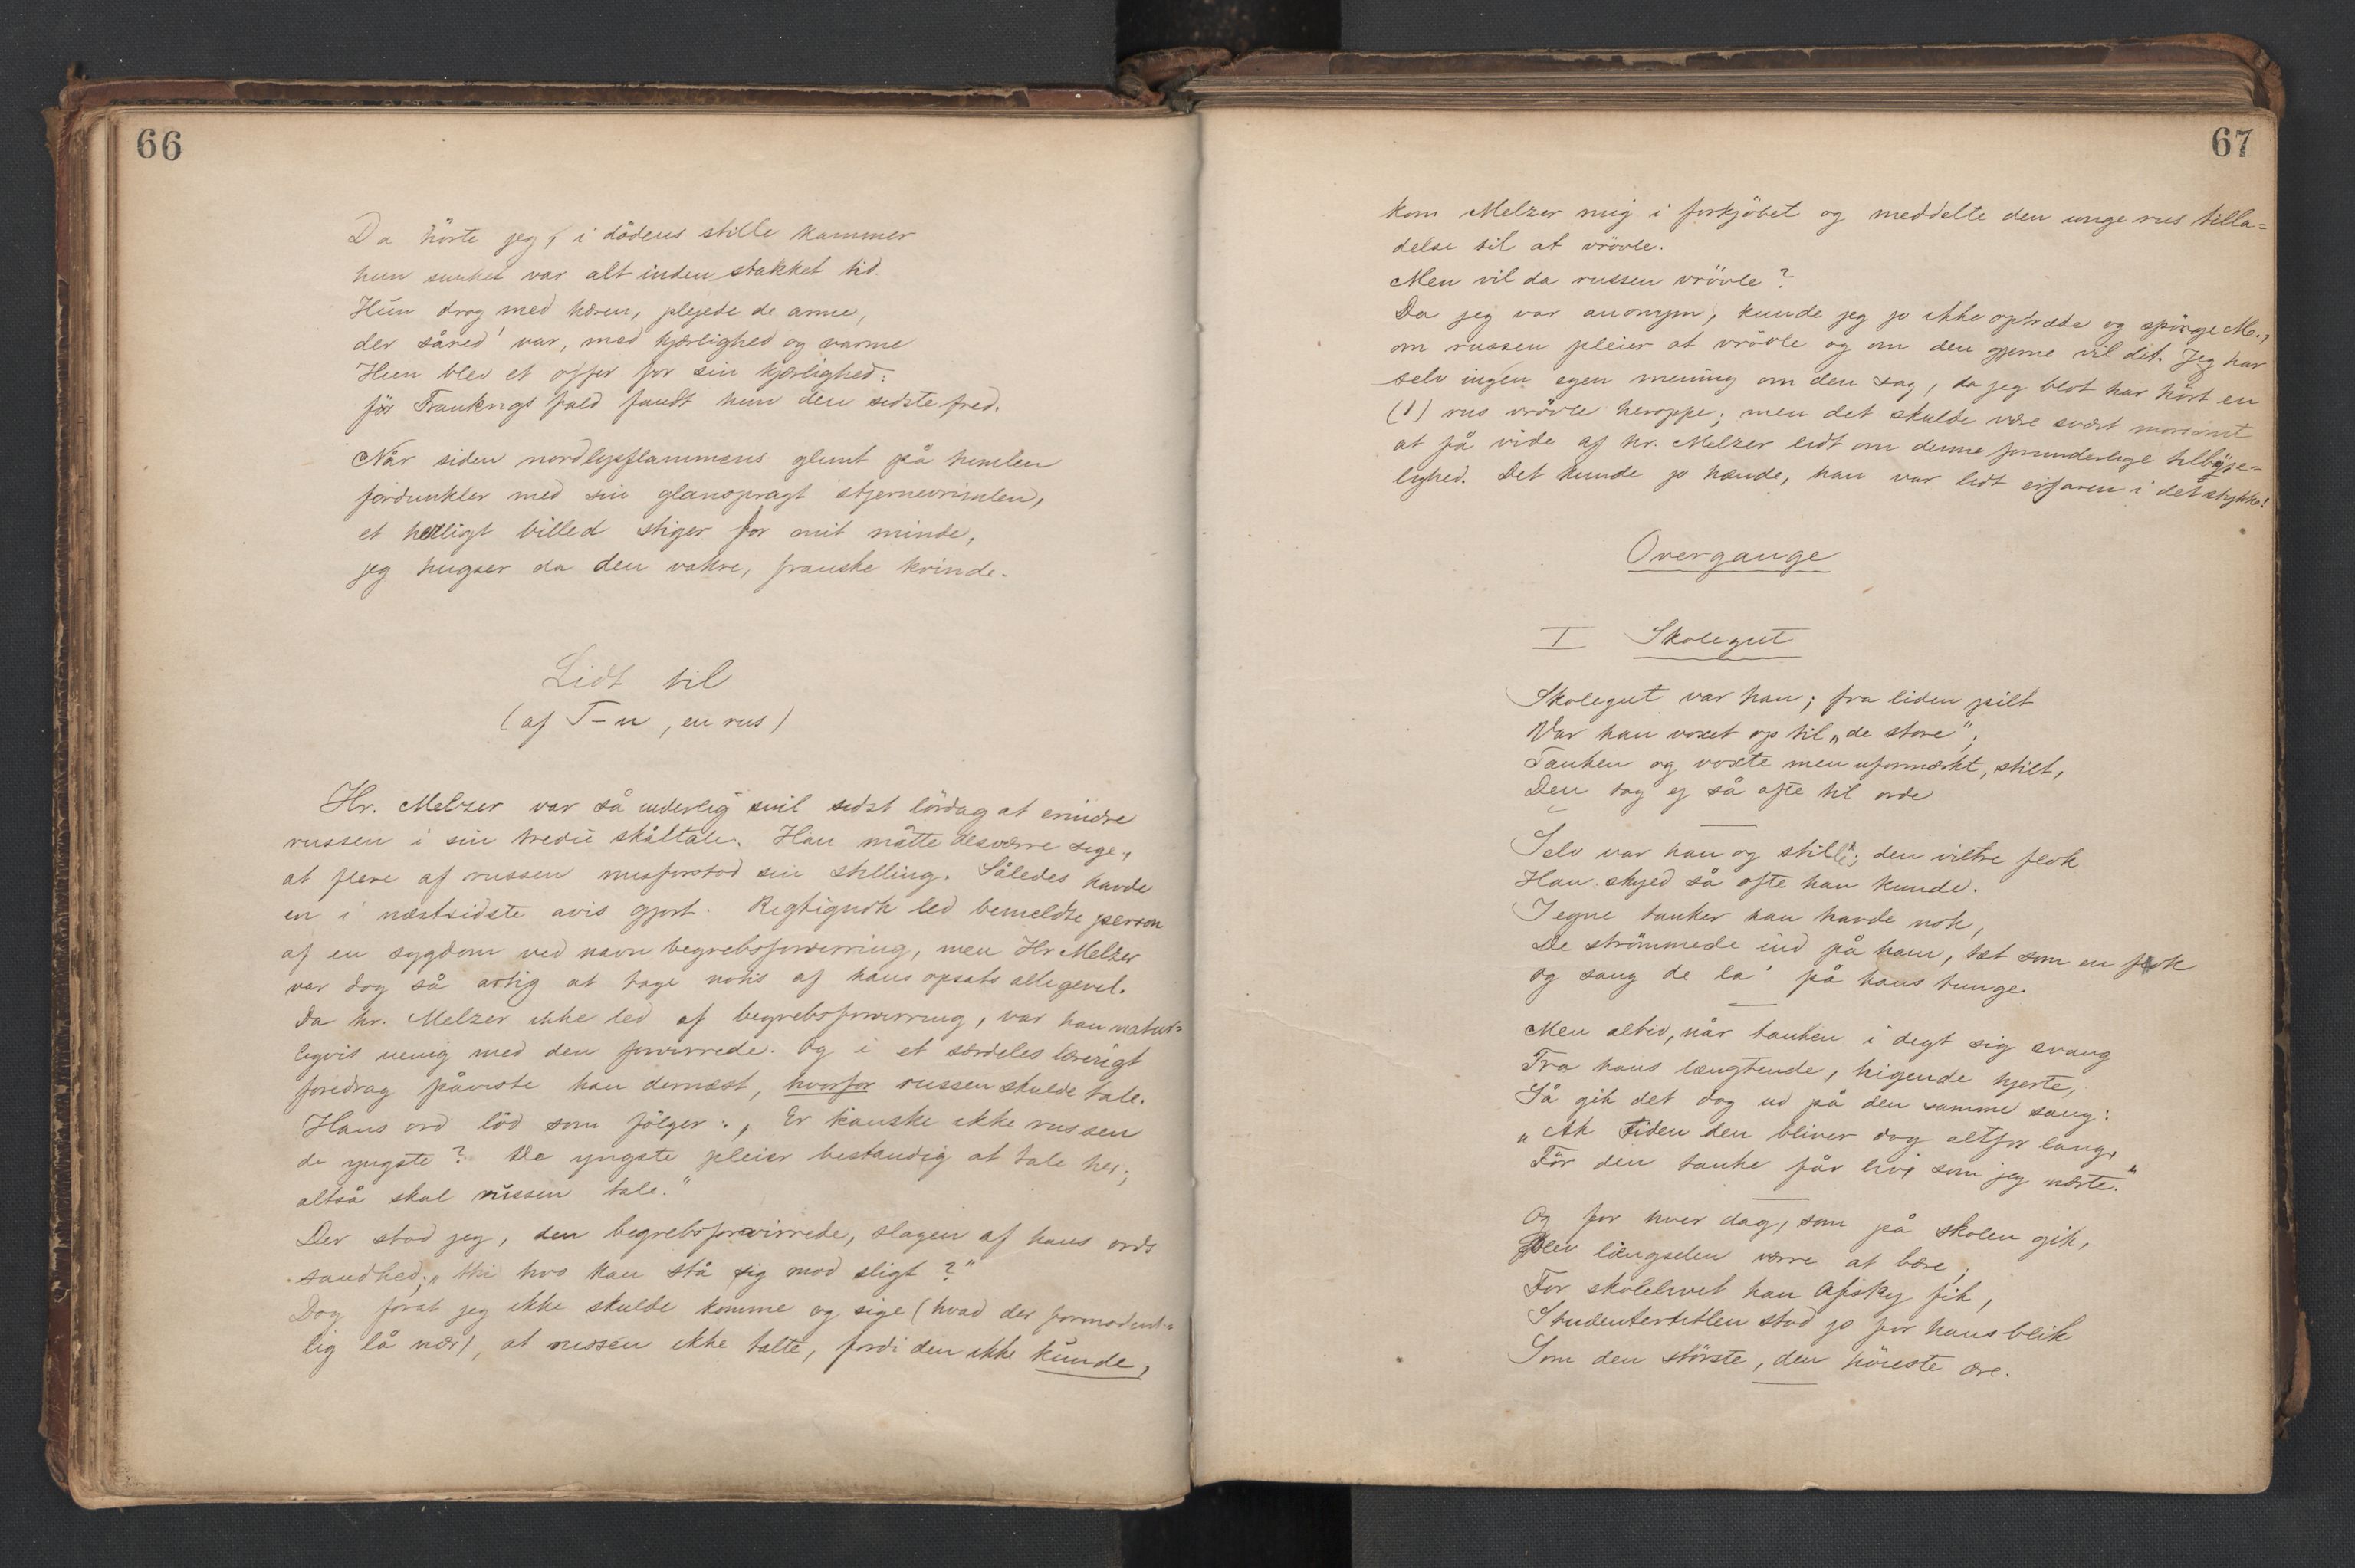 66
Da hörte jeg, i dödens stille kammer
hun sunket var alt inden stakket tid.
Hun drog med hæren, plejede de arme,
der såred' var, med kjærlighed og varme
Hun blev et offer for sin kjærlighed:
för Frankrigs fald fandt hun den sidste fred.
Når siden nordlysflammens glimt på himlen
fordunkler med sin glanspragt stjernevrimlen,
et helligt billed stiger for mit minde,
jeg hugser da den vakre, franske kvinde.
Lidt til
(af T-n, en rus)
Hr. Melzer var så underlig snil sidst lördag at erindre
russen i sin tredie skåltale. Han måtte desværre sige,
at flere af russen misforstod sin stilling. Således havde
en i næstsidste avis gjort. Rigtignok led bemeldte person
af en sygdom ved navn begrebsforvirring, men Hr Melzer
var dog så artig at tage notis af hans opsats alligevel.
Da hr. Melzer ikke led af begrebsforvirring, var han natur=
ligvis uenig med den forvirrede. Og i et særdeles lærerigt
foredrag påviste han dernæst, hvorfor russen skulde tale.
Hans ord löd som fölger: „Er kanske ikke russen
de yngste? De yngste pleier bestandig at tale her;
altså skal russen tale."
Der stod jeg, den begrebsforvirrede, slagen af hans ords
sandhed; „thi hvo kan stå sig mod sligt?"
Dog forat jeg ikke skulde komme og sige (hvad der formodent=
lig lå nær), at russen ikke talte, fordi den ikke kunde,
67
kom Melzer mig i forkjöbet og meddelte den unge rus tilla=
delse til at vrövle.
Men vil da russen vrövle?
Da jeg var anonym, kunde jeg jo ikke optræde og spörge M.,
om russen pleier at vrövle og om den gjerne vil det. Jeg har
selv ingen egen mening om den sag, da jeg blot har hört en
(1) rus vrövle heroppe; men det skulde være svært morsomt
at få vide af hr. Melzer lidt om denne forunderlige tilböje=
lighed. Det kunde jo hænde, han var lidt erfaren i det stykke!
Overgange
I Skolegut
Skolegut var han; fra liden pilt
Var han voxet op til „de store";
Tanken og voxte men uformærkt, stilt,
Den tog ej så ofte til orde
Selv var han og stille; den viltre flok
Han skyed så ofte han kunde.
I egne tanker han havde nok,
De strömmede ind på ham, tæt som en flok
Og sang de la' på hans tunge.
Men altid, når tanken i digt sig svang
Fra hans længtende, higende hjerte,
Så gik det dog ud på den samme sang:
„Ak tiden den bliver dog altfor lang,
För den tanke får liv, som jeg nærte."
Og for hver dag, som på skolen gik,
Blev længselen værre at bære;
For skolelivet han Afsky fik,
Studentertitlen stod jo for hans blik
Som den störste, den höieste ære.